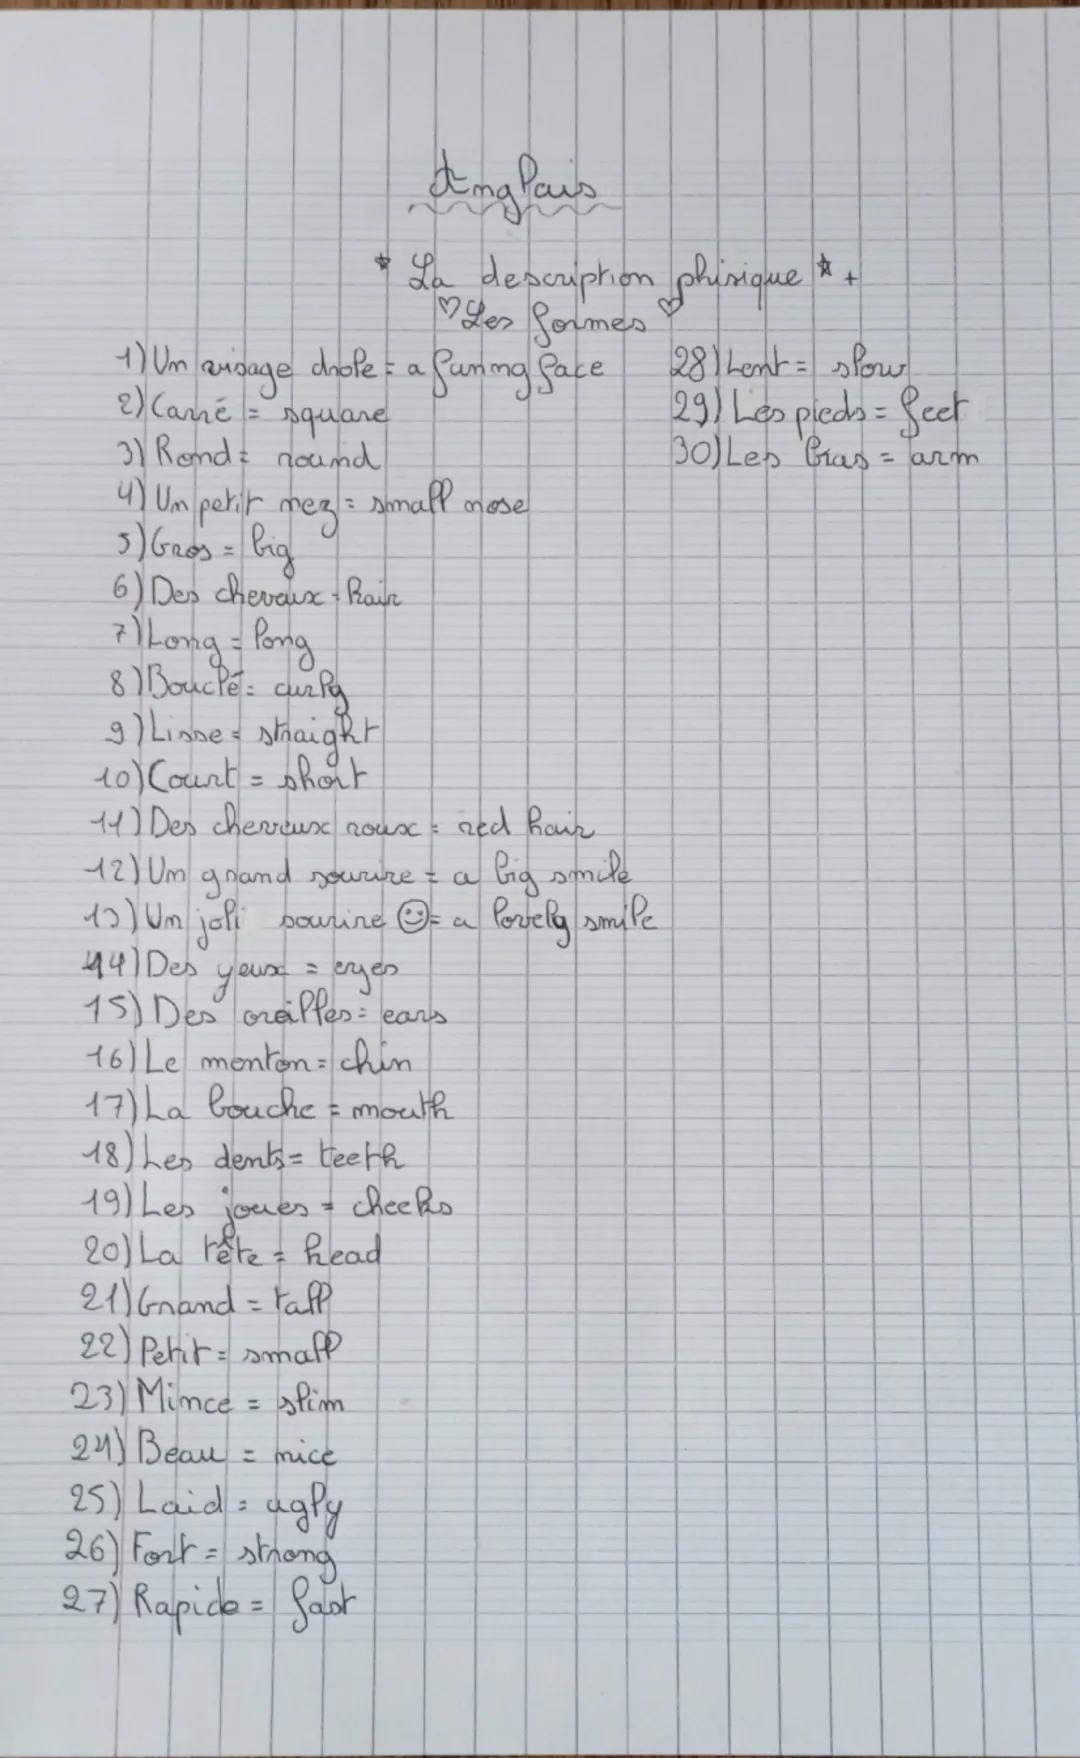 Anglais
* La description phisique * +
♡ Les formes ♡
1) Un visage drole = a funing face
2) Carré = square
3) Rond = round
4) Un petit nez = small nose
5) Gros = big
6) Des cheveux = hair
7) Long = long
8) Bouclé = curly
9) Lisse = straight
10) Court = short
11) Des cheveux roux = red hair
12) Un grand sourire = a big smile
13) Un joli sourire ☺ = a lovely smile
14) Des yeux = eyes
15) Des oreilles = ears
16) Le menton = chin
17) La bouche = mouth
18) Les dents = teeth
19) Les joues = cheeks
20) La tête = head
21) Grand = tall
22) Petit = small
23) Mince = slim
24) Beau = nice
25) Laid = ugly
26) Fort = strong
27) Rapide = fast
28) Lent = slow
29) Les pieds = feet
30) Les bras = arm